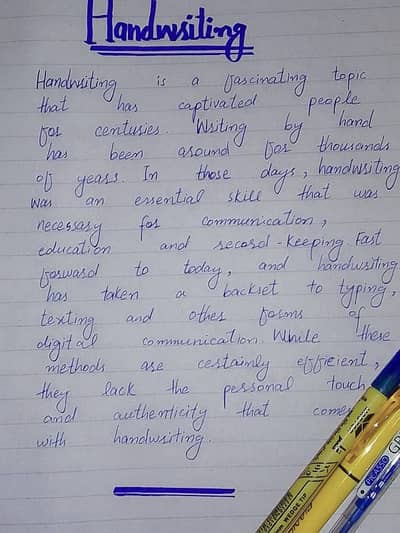 Handwriting
Handwriting is a fascinating topic
that has captivated people
for centuries. Writing by hand
has been around for thousands
of years. In those days, handwriting
was an essential skill that was
necessary for communication,
education and record-keeping. Fast
forward to today, and handwriting
has taken a backset to typing,
texting and other forms of
digital communication. While these
methods are certainly efficient,
they lack the personal touch
and authenticity that comes
with handwriting.
WEDGE TIP
PICASSO